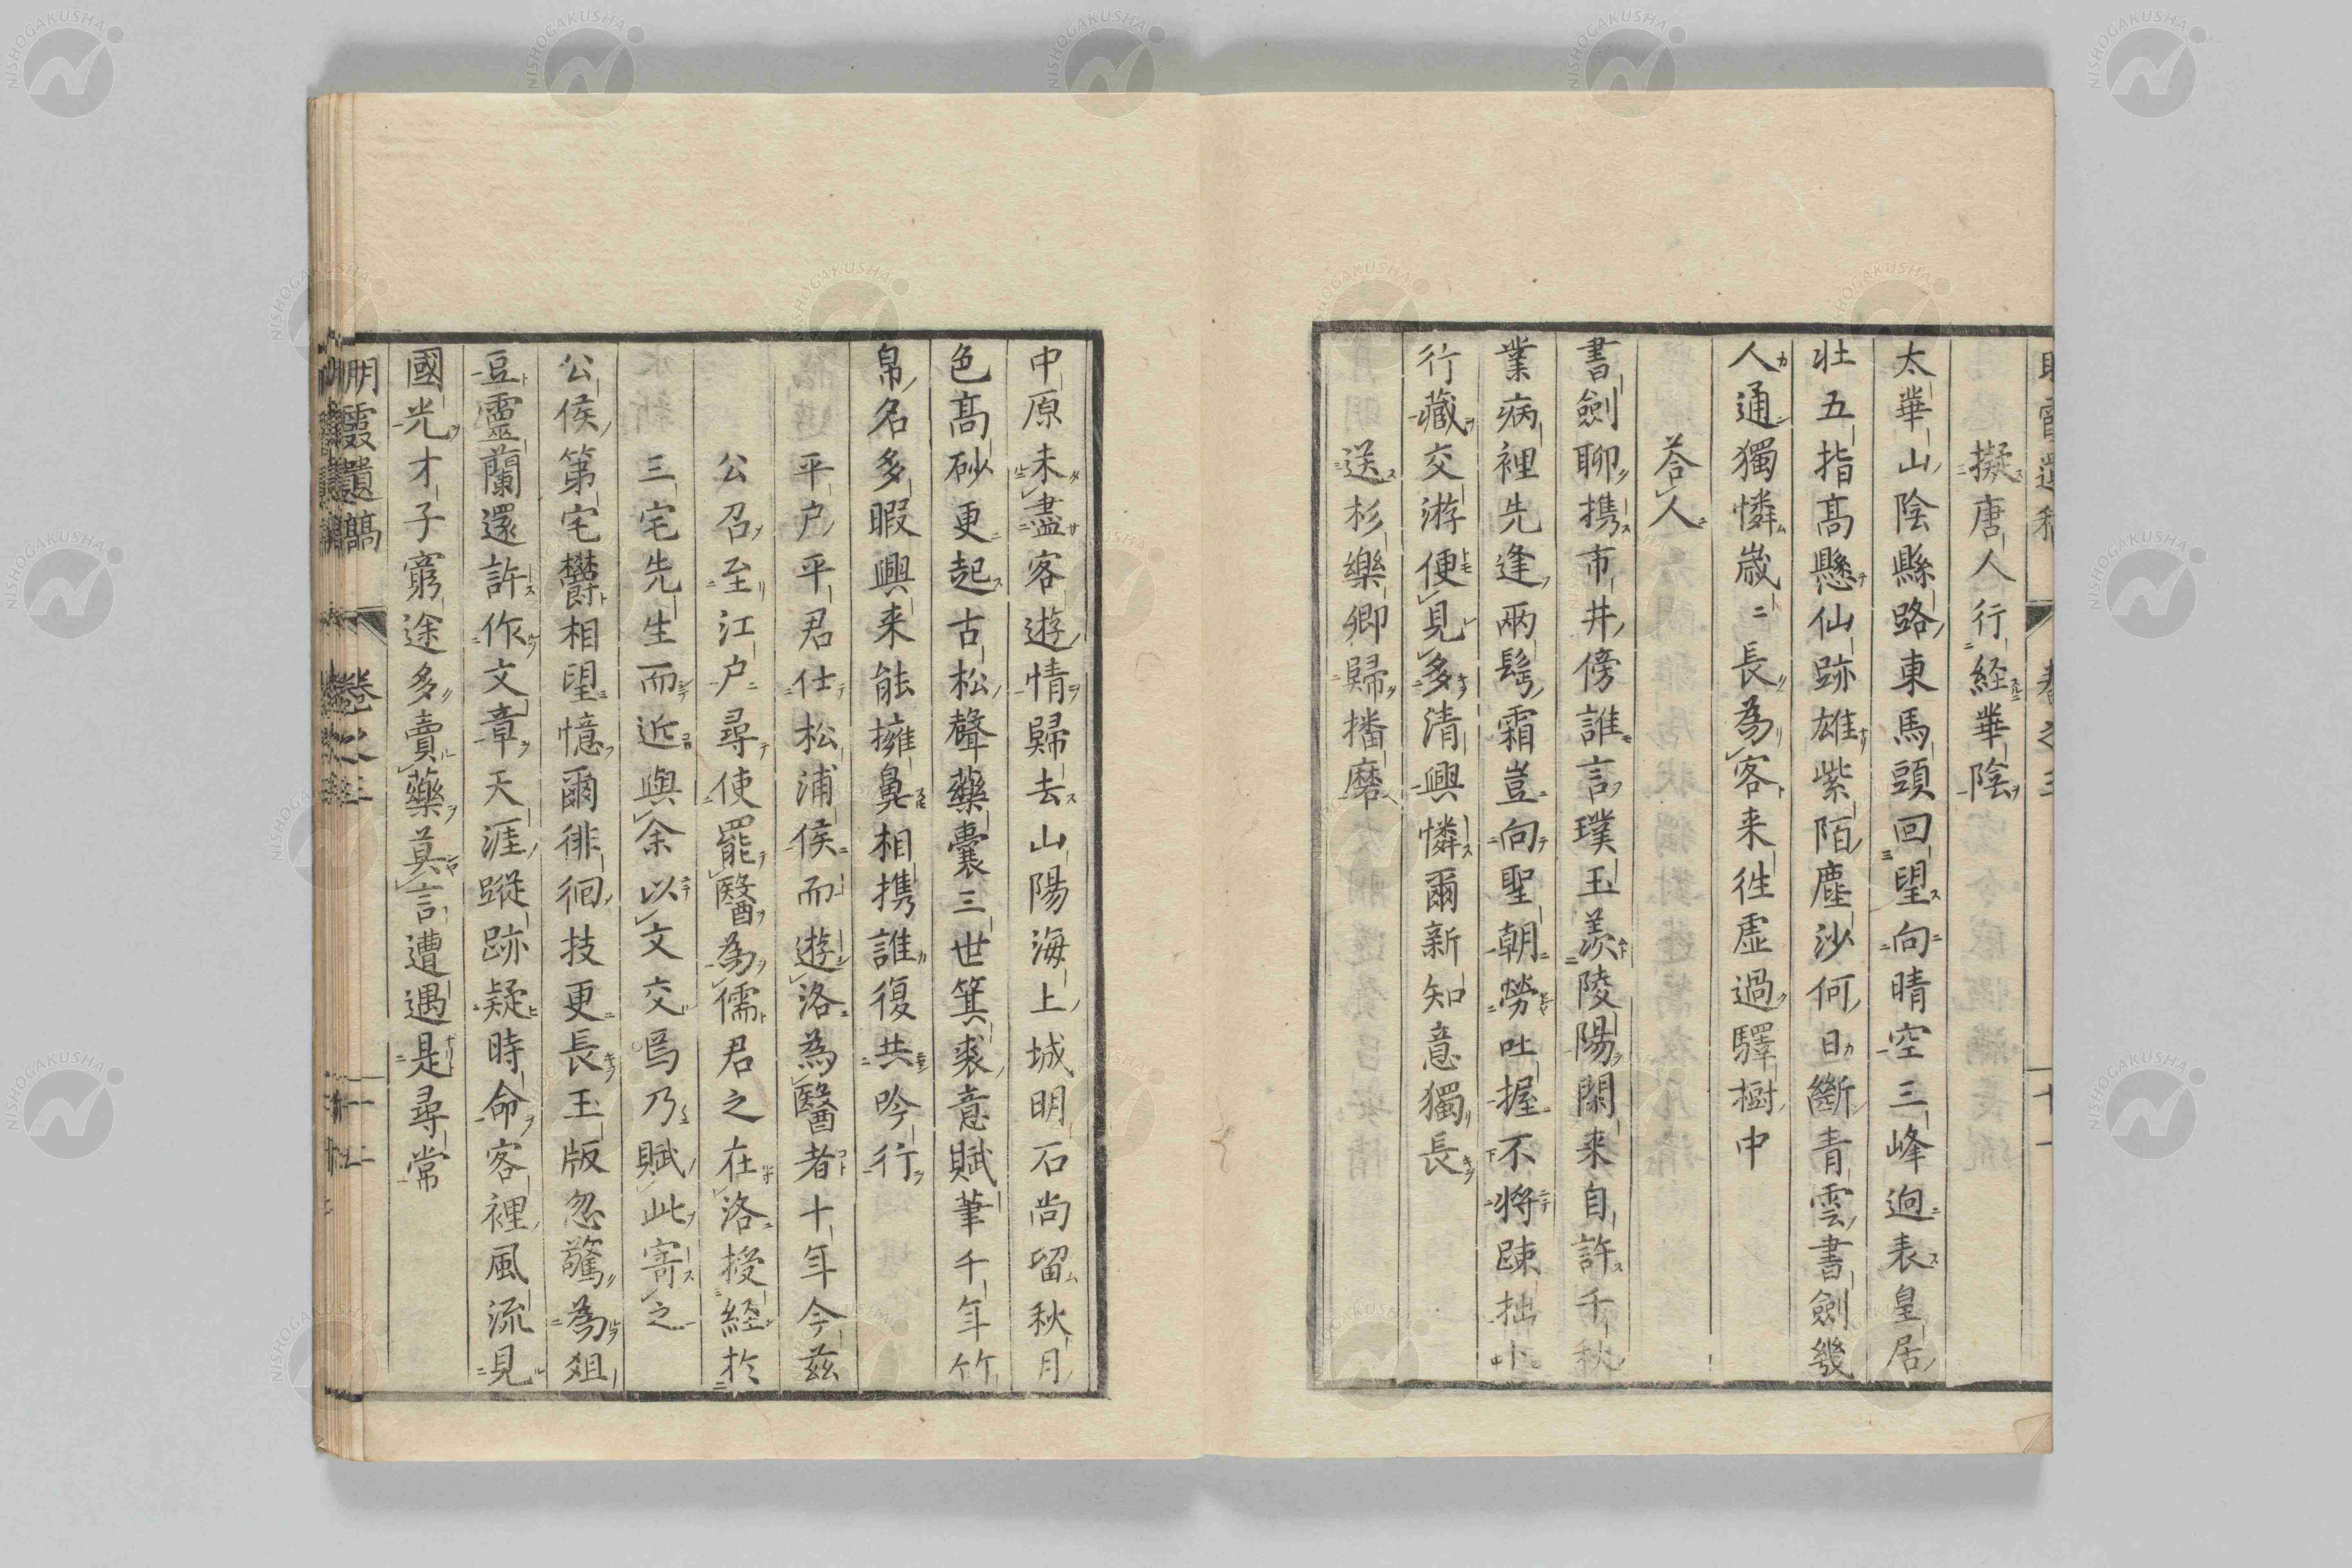 擬唐人行経華陰
太華山陰縣路東馬頭回望向晴空三峰迥表皇居
壮五指高懸仙跡雄紫陌塵沙何日斷青雲書劍幾
人通獨憐歳〻長為客来往虚過驛樹中
荅人
書劍聊携市井傍誰言璞玉羨陵陽閑来自許千秋
業病裡先逢兩髩霜豈向聖朝勞吐握不将踈拙卜
行藏交游便見多清興憐爾新知意獨長
送杉樂卿歸播磨
中原未盡客遊情歸去山陽海上城明石尚留秋月
色高砂更起古松聲藥囊三世箕裘意賦筆千年竹
帛名多暇興来能擁鼻相携誰復共吟行
平户平君仕松浦侯而遊洛為醫者十年今兹
公召至江户尋使罷醫為儒君之在洛授経於
三宅先生而近與余以文交焉乃賦此寄之
公侯第宅欝相望憶爾徘徊技更長玉版忽驚為爼
豆靈蘭還許作文章天涯蹤跡疑時命客裡風流見
國光才子窮途多賣藥莫言遭遇是尋常
明霞遺稿 卷之三 十二
NISHOGAKUSHA